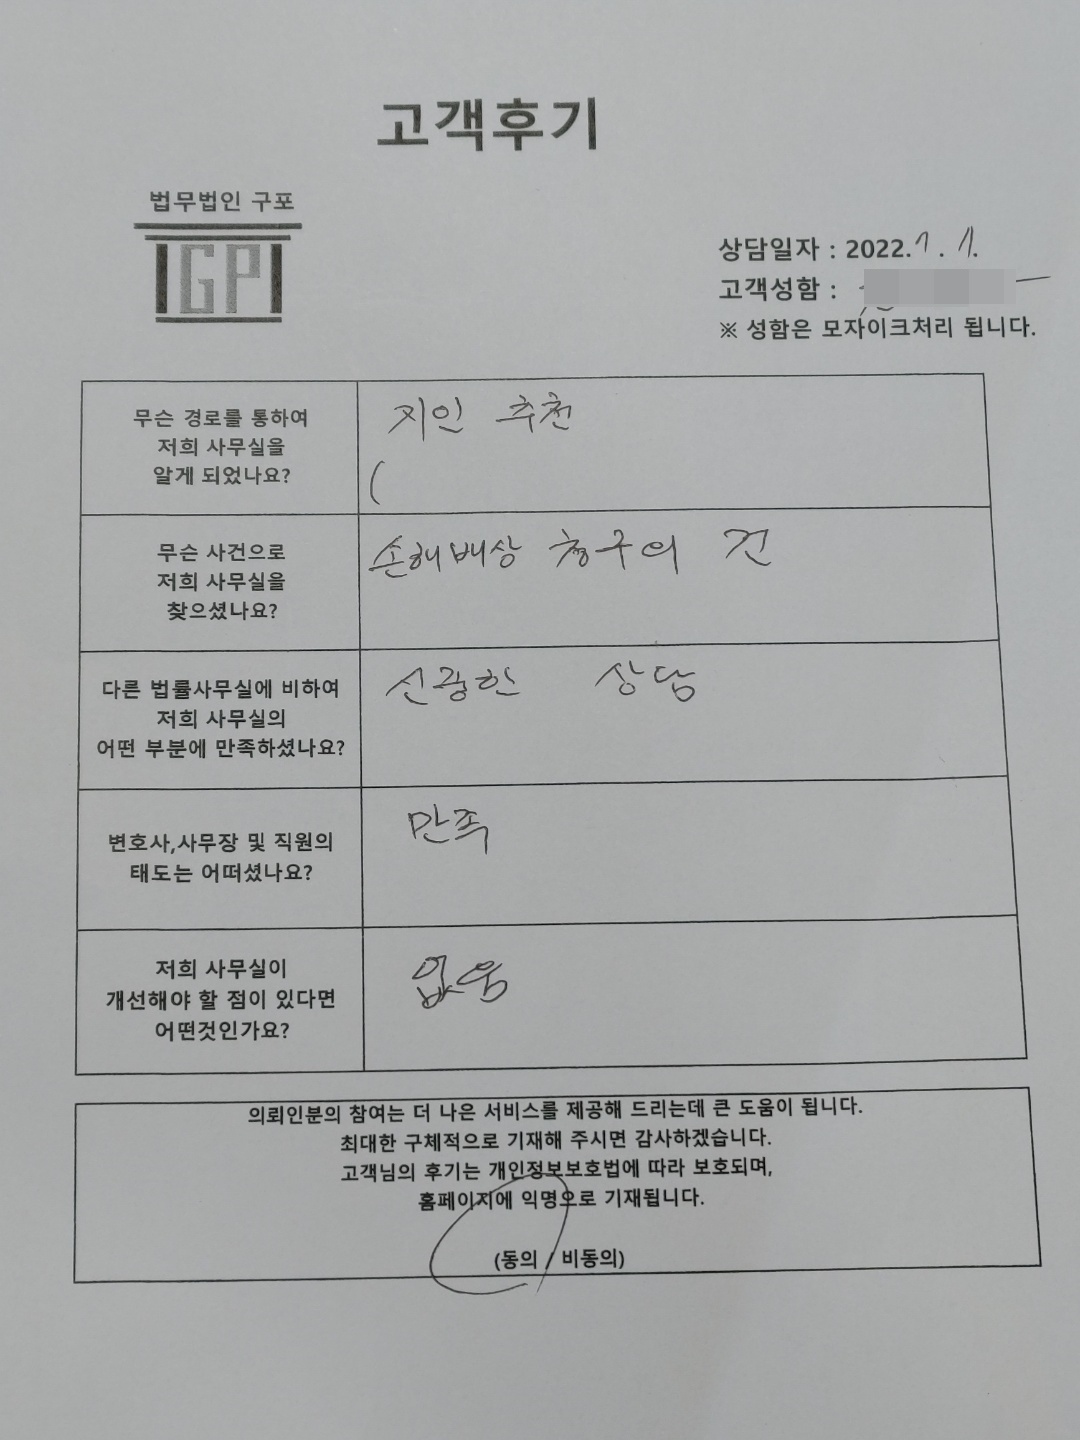 고객후기
법무법인 구포
GP
상담일자 : 2022. 7. 1.
고객성함 :
※ 성함은 모자이크처리 됩니다.
무슨 경로를 통하여
저희 사무실을
알게 되었나요?
지인 추천
(
무슨 사건으로
저희 사무실을
찾으셨나요?
손해배상 청구의 건
다른 법률사무실에 비하여
저희 사무실의
어떤 부분에 만족하셨나요?
상담
변호사,사무장 및 직원의
태도는 어떠셨나요?
만족
저희 사무실이
개선해야 할 점이 있다면
어떤것인가요?
없음
의뢰인분의 참여는 더 나은 서비스를 제공해 드리는데 큰 도움이 됩니다.
최대한 구체적으로 기재해 주시면 감사하겠습니다.
고객님의 후기는 개인정보보호법에 따라 보호되며,
홈페이지에 익명으로 기재됩니다.
(동의 / 비동의)